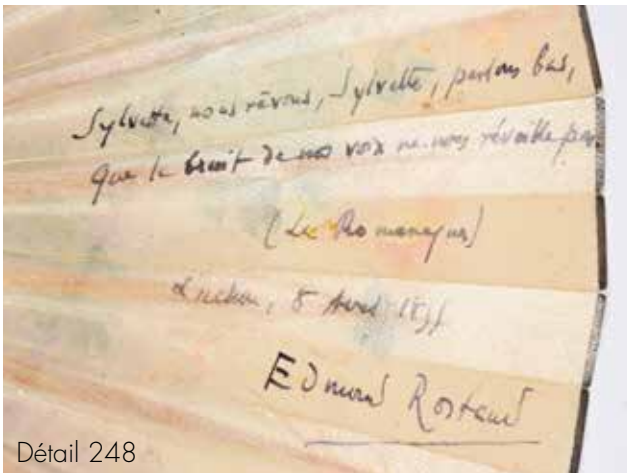 Sylvette, nous rêvons, Sylvette, parlons bas,
Que le bruit de nos voix ne nous réveille pas
(Les Romanesques)
Luchon, 8
Edmond Rostand
Détail 248